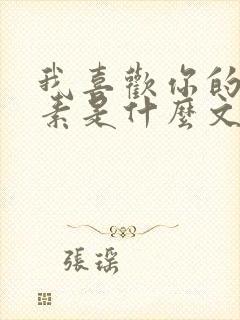 我喜歡你的
素是什麼文
張瑤